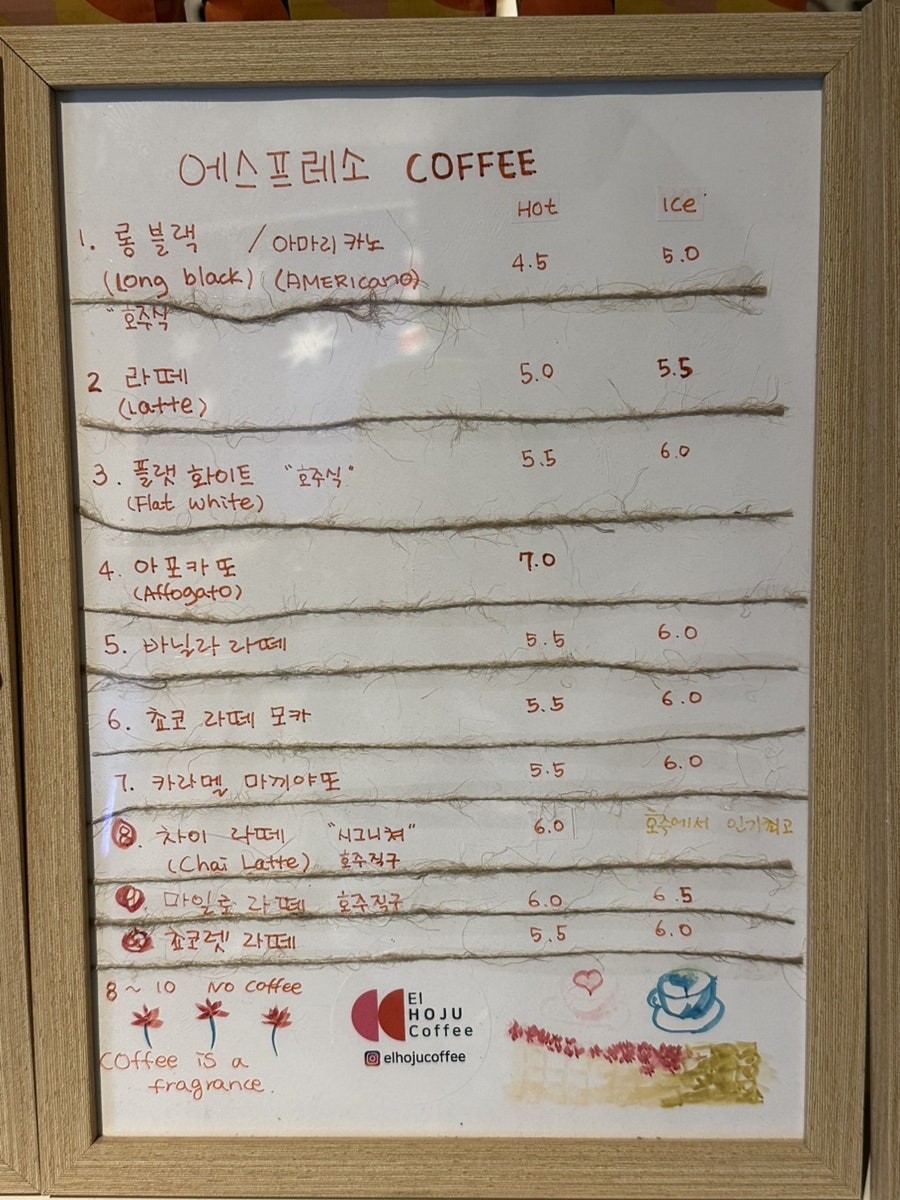 에스프레소 COFFEE
Hot Ice
1. 롱 블랙 / 아마리카노 4.5 5.0
(Long black) (AMERICANO)
" 호주식
2 라떼 5.0 5.5
(Latte)
3. 플랫 화이트 "호주식" 5.5 6.0
(Flat white)
4. 아포카또 7.0
(Affogato)
5. 바닐라 라떼 5.5 6.0
6. 쵸코 라떼 모카 5.5 6.0
7. 카라멜 마끼야또 5.5 6.0
8. 차이 라떼 "시그니쳐" 6.0 호주에서 인기최고
(Chai Latte) 호주직구
마일로 라떼 호주직구 6.0 6.5
쵸코렛 라떼 5.5 6.0
8 ~ 10 No coffee
El
HOJU
Coffee
elhojucoffee
Coffee is a
fragrance.